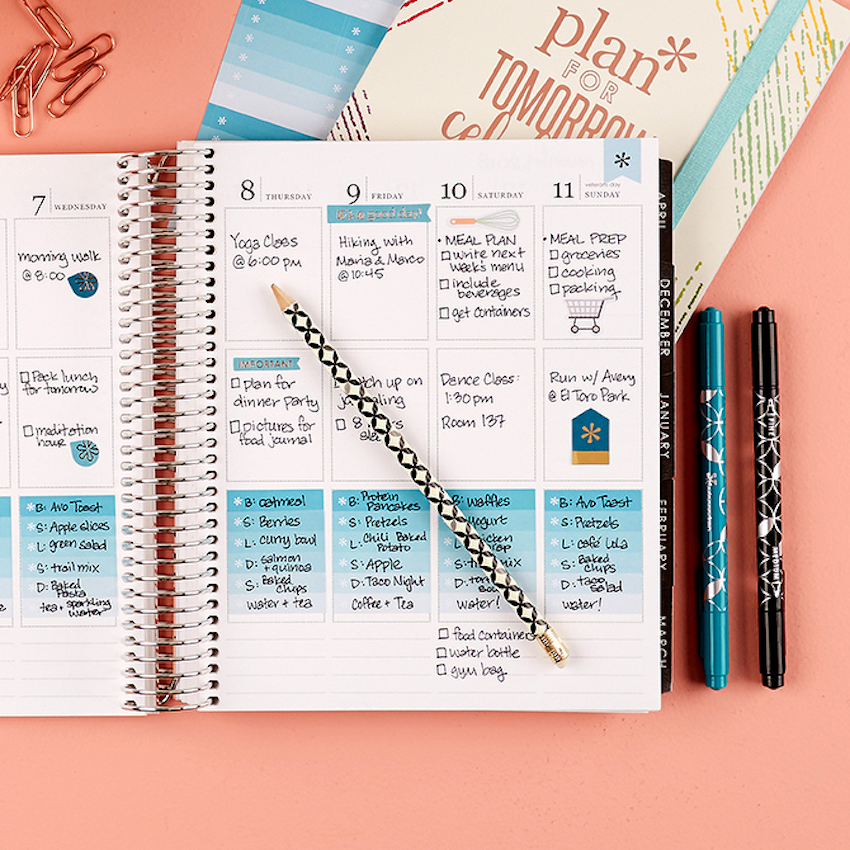 plan*
FOR
TOMORROW
7 WEDNESDAY
morning walk
@ 8:00
Pack lunch
for tomorrow
meditation
hour
B: Avo Toast
S: Apple slices
L: green salad
S: trail mix
D: Baked
Pasta
tea + sparkling
water
8 THURSDAY
Yoga Class
@ 6:00 PM
IMPORTANT
plan for
dinner party
pictures for
food journal
B: oatmeal
S: Berries
L: curry bowl
D: Salmon
+ quinoa
S: Baked
Chips
water + tea
9 FRIDAY
it's a good day!
Hiking with
Maria & Marco
@ 10:45
up on
8
B: Protein
Pancakes
S: Pretzels
L: Chili Baked
Potato
S: Apple
D: Taco Night
Coffee + Tea
10 SATURDAY
• MEAL PLAN
write next
week's menu
include
beverages
get containers
Dance Class:
1:30 pm
Room 137
B: Waffles
yogurt
mix
D:
water!
food containers
water bottle
gym bag
11 veteran's day
SUNDAY
• MEAL PREP
groceries
cooking
packing
Run w/ Avery
@ El Toro Park
B: Avo Toast
S: Pretzels
L: café Lola
S: Baked
Chips
D: taco
salad
water!
APRIL
DECEMBER
JANUARY
FEBRUARY
MARCH
MEDIUM